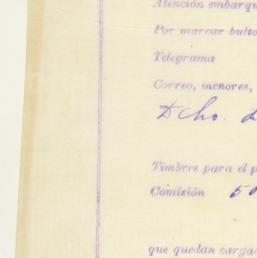 Atención embarqu
Por marcar bulto
Telegrama
Correo, menores,
Dcho.
Timbres para el p
Comisión 50
que quedan cargad